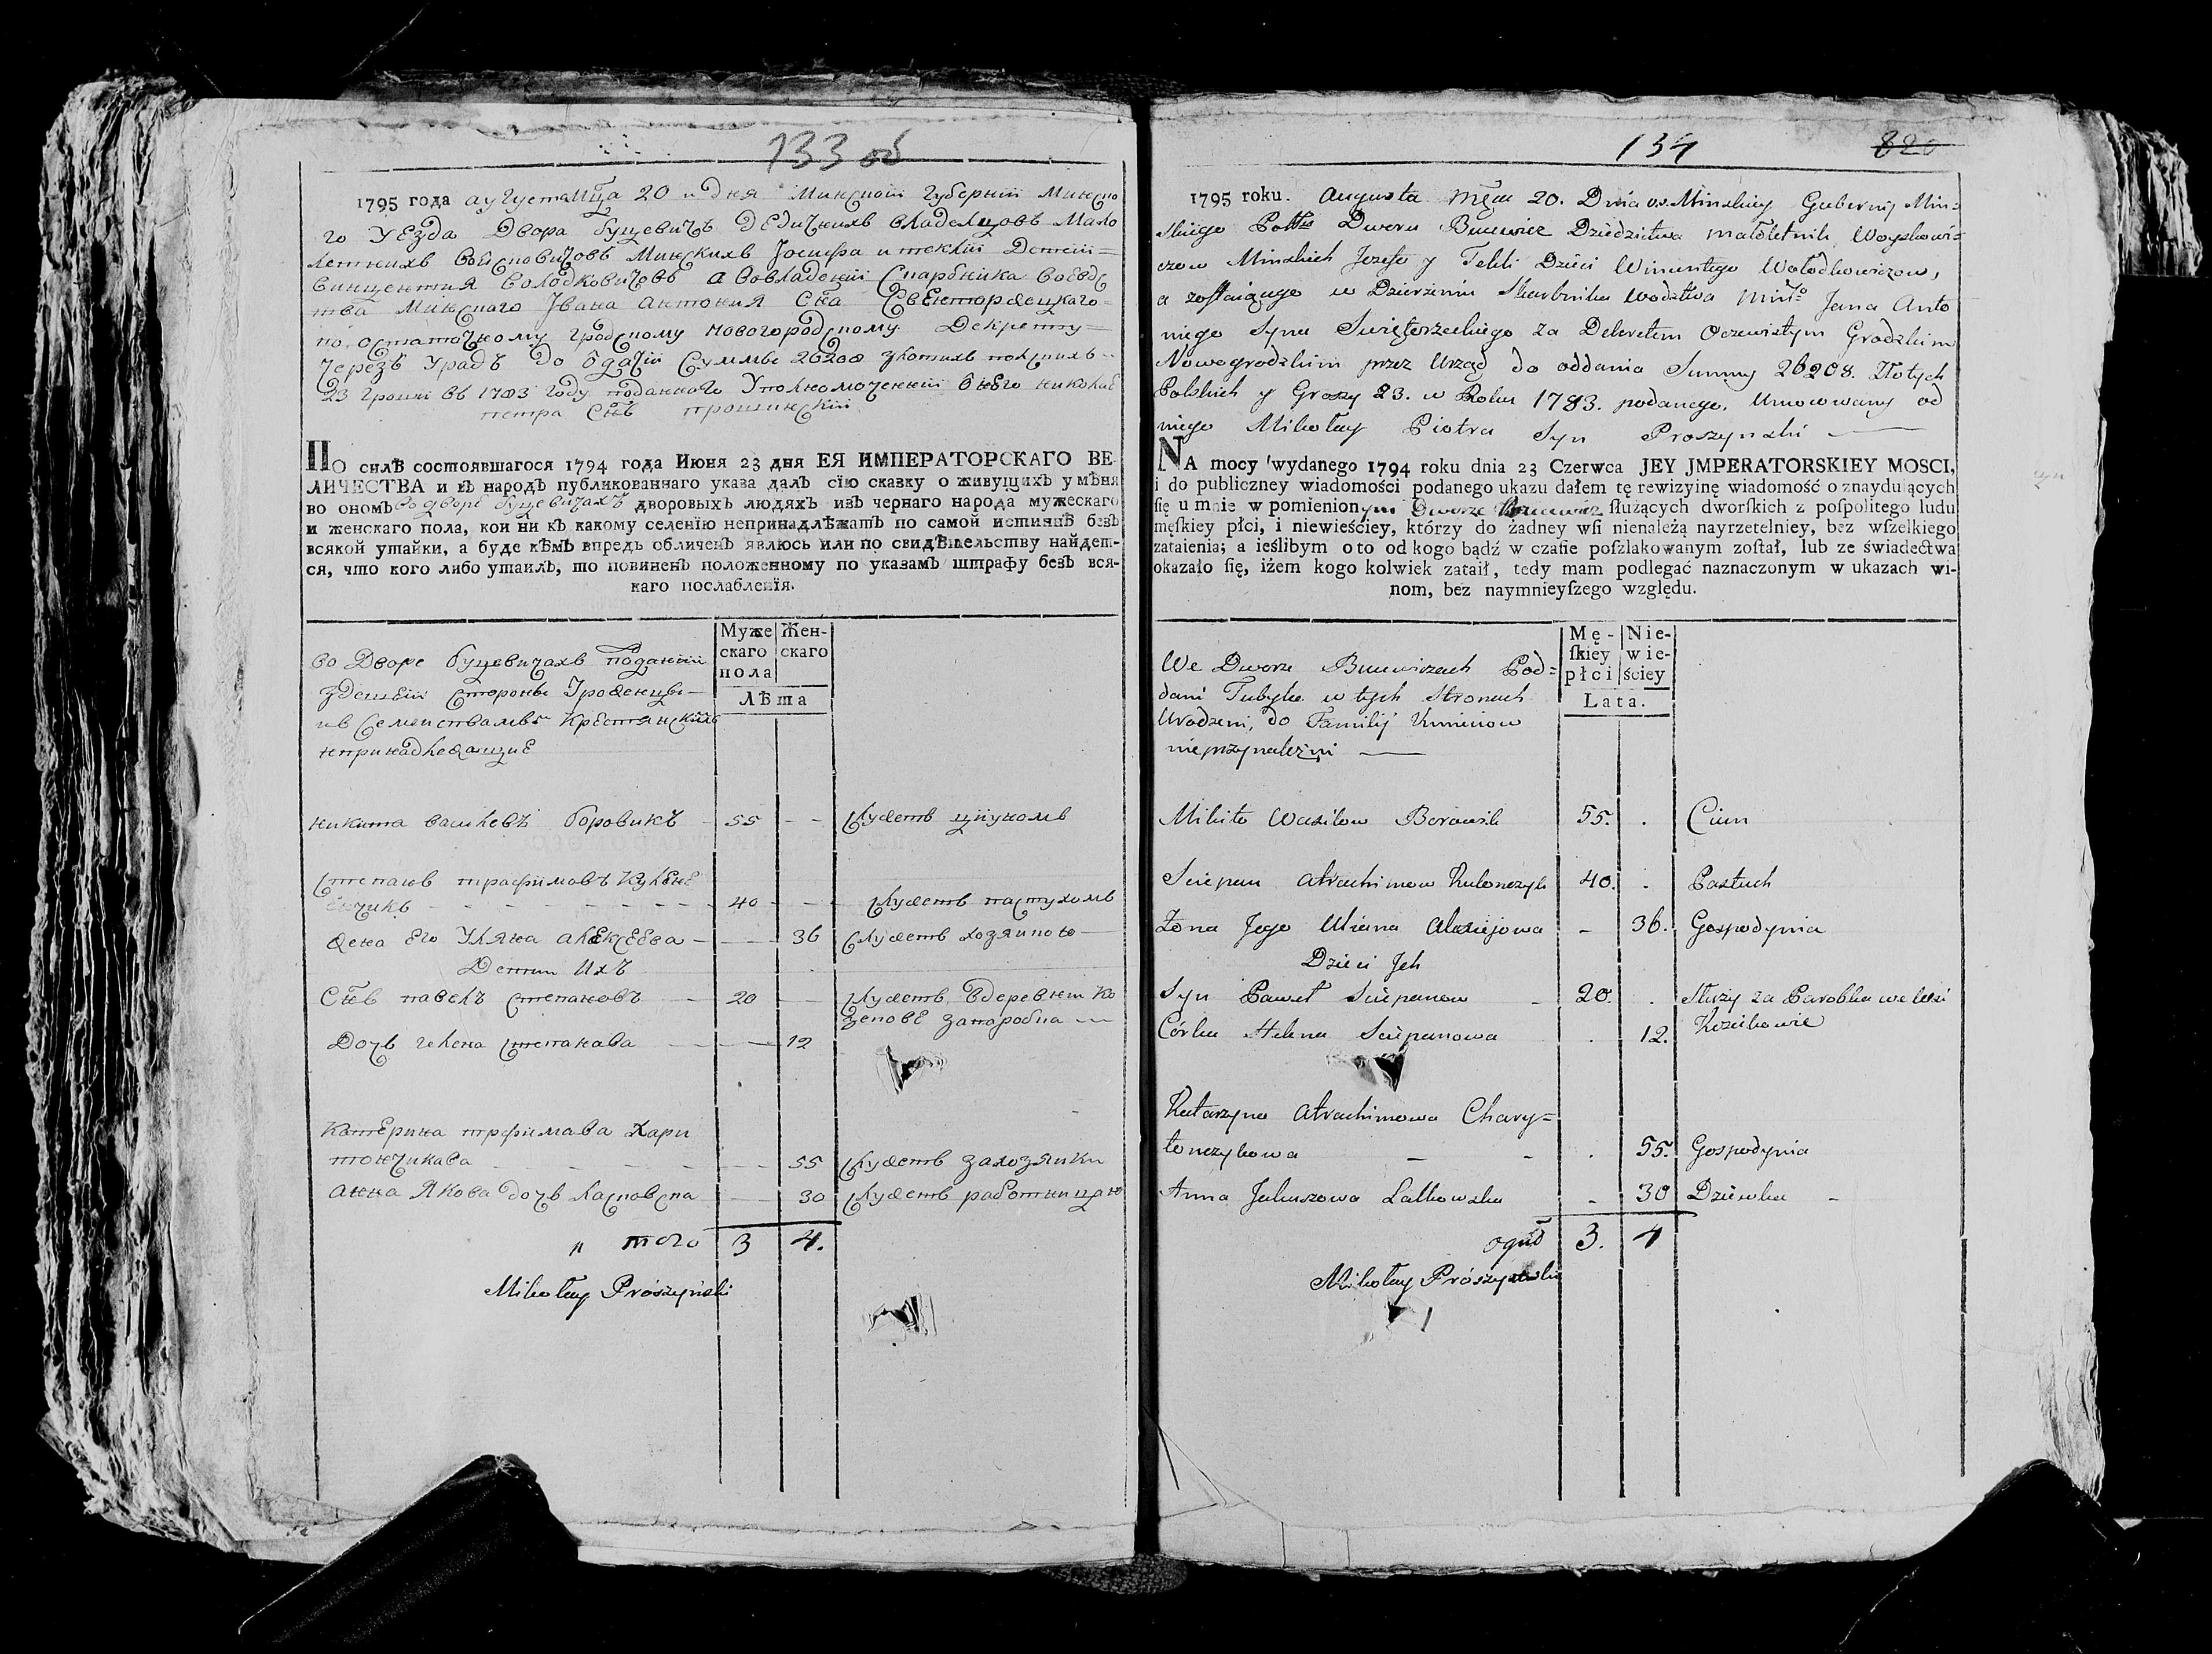 133 об
1795 года августа мца 20 и дня Минской Губернии Минско
го Уезда Двора Буцевичъ Дедичнихъ владелцовъ Мало
летнихъ Войсковичовъ Минскихъ Iосифа и теклiй Детей=
Винцентия Володковичовъ а Во владенiй Скарбника Воевдс
тва Минского Iвана антония Сна Свенторжецкаго=
по остаточному гродскому новогородскому Декрету=
черезъ Урадъ до одачiй Суммы 26208 злотихъ полскихъ
23 грошй въ 1783 году поданнаго Уполномоченнiй от него николай
петра Снъ прошинскiй
ПО силѣ состоявшагося 1794 года Июня 23 дня ЕЯ ИМПЕРАТОРСКАГО ВЕ-
ЛИЧЕСТВА и въ народъ публикованнаго указа далъ сїю сказку о живущихъ у мѣня
во ономъ во дворе буцевичахъ дворовыхъ людяхъ изъ чернаго народа мужескаго
и женскаго пола, кои ни къ какому селенїю непринадлѣжатъ по самой истиннѣ безъ
всякой утайки, а буде кѣмъ впредь обличенъ явлюсь или по свидѣтельству найдет-
ся, что кого либо утаилъ, то повиненъ положенному по указамъ штрафу безъ вся-
каго послабленїя.
Муже скаго пола
Жен- скаго
Лѣта
во Дворе буцевичахъ Поданий
здешней Стороны Уроженци
къ Семействамъ Крестянскимъ
непринадлежащие
никита васильевъ боровикъ - 55 - - Служетъ цiуномъ
Степанъ трафимовъ Кулене
ончикъ - - - 40 - - Служетъ пастухомъ
жена его Ульяна алексеева - - 36 Служетъ хозяиною
Дети Ихъ
Снъ павелъ степановъ - 20 - - Служетъ в деревни Ко
зекове за паробка
Дочъ гелена степанава - - 12
Катерина трафимава Хари
тончикава - - - 55 Служетъ за хозяйки
анна Якова дочъ Ласковска - - 30 Служетъ работницаю
и того 3 4.
Mikołay Prószyński
134 820
1795 roku. Augusta Mca 20. Dnia v.s. Minskiey Gubernij Min=
skiego Pottu Dworu Bucewicz Dziedzictwa małoletnich Woyskowi=
czow Minskich Jozefa y Tekli Dzieci Wincentego Wołodkowiczow,
a zostaiącego w Dzierżeniu Skarbnika Wodztwa Minso Jana Anto
niego Syna Swiętorzeckiego za Dekretem Oczewistym Grodzkim
Nowogrodzkim przez Urząd do oddania Summy 26208. Złotych
Polskich y Groszy 23. w Roku 1783. podanego. Umocowany od
niego Mikołay Piotra Syn Proszynski
NA mocy wydanego 1794 roku dnia 23 Czerwca JEY JMPERATORSKIEY MOSCI,
i do publiczney wiadomości podanego ukazu dałem tę rewizyinę wiadomość o znayduiących
się u mnie w pomienionym Dworze Bucewicz służących dworskich z pospolitego ludu
męskiey płci, i niewieściey, którzy do żadney wsi nienależą nayrzetelniey, bez wszelkiego
zataienia; a ieślibym o to od kogo bądź w czasie poszlakowanym został, lub ze świadectwa
okazało się, iżem kogo kolwiek zataił, tedy mam podlegać naznaczonym w ukazach wi-
nom, bez naymnieyszego względu.
Mę- skiey płci
Nie- wie- ściey
Lata.
We Dworze Bucewiczach Pod=
dani Tubylce w tych Stronach
Urodzeni, do Familij Kmieciow
nieprzynależni
Mikita Wasilow Borowik 55. . Ciun
Sciepan Atrachimow Kulonczyk 40. . Pastuch
Żona Jego Uliana Alexiejowa - 36. Gospodynia
Dzieci Jch
Syn Paweł Sciepanow - 20. . Służy za Parobka we Wsi
Córka Helena Sciepanowa . 12. Kozickowie
Katarzyna Atrachimowa Chary=
tonczykowa - - . 55. Gospodynia
Anna Jakuszowa Laskowska - 30 Dziewka -
oguł 3. 4
Mikołay Prószynski